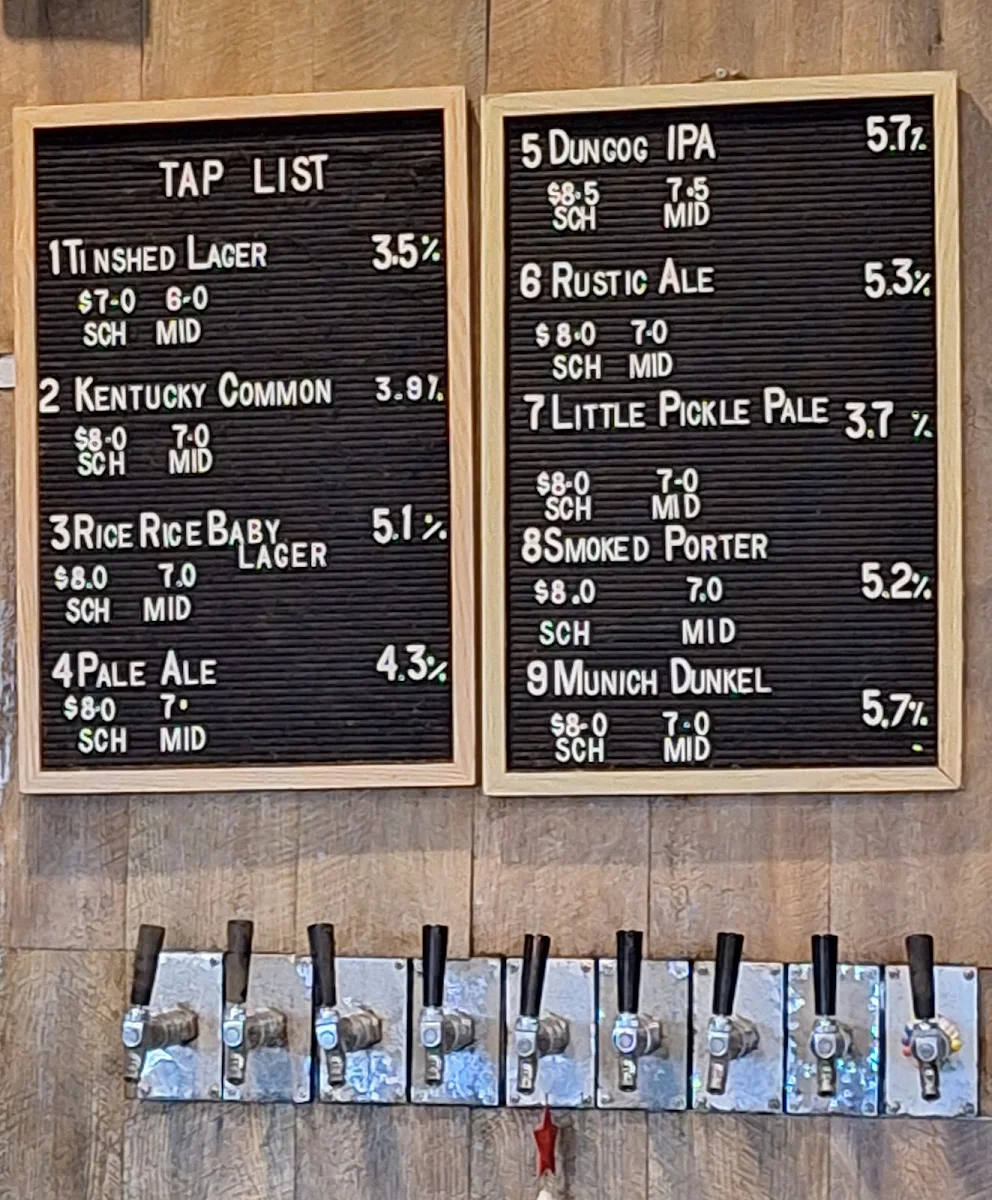 TAP LIST
1 TINSHED LAGER 3.5%
$7.0 6.0
SCH MID
2 KENTUCKY COMMON 3.9%
$8.0 7.0
SCH MID
3 RICE RICE BABY 5.1%
LAGER
$8.0 7.0
SCH MID
4 PALE ALE 4.3%
$8.0 7.
SCH MID
5 DUNGOG IPA 5.7%
$8.5 7.5
SCH MID
6 RUSTIC ALE 5.3%
$8.0 7.0
SCH MID
7 LITTLE PICKLE PALE 3.7 %
$8.0 7.0
SCH MID
8 SMOKED PORTER
$8.0 7.0 5.2%
SCH MID
9 MUNICH DUNKEL
5.7%
$8.0 7.0
SCH MID